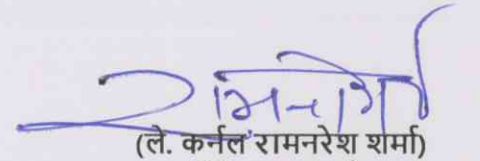 (ले. कर्नल रामनरेश शर्मा)